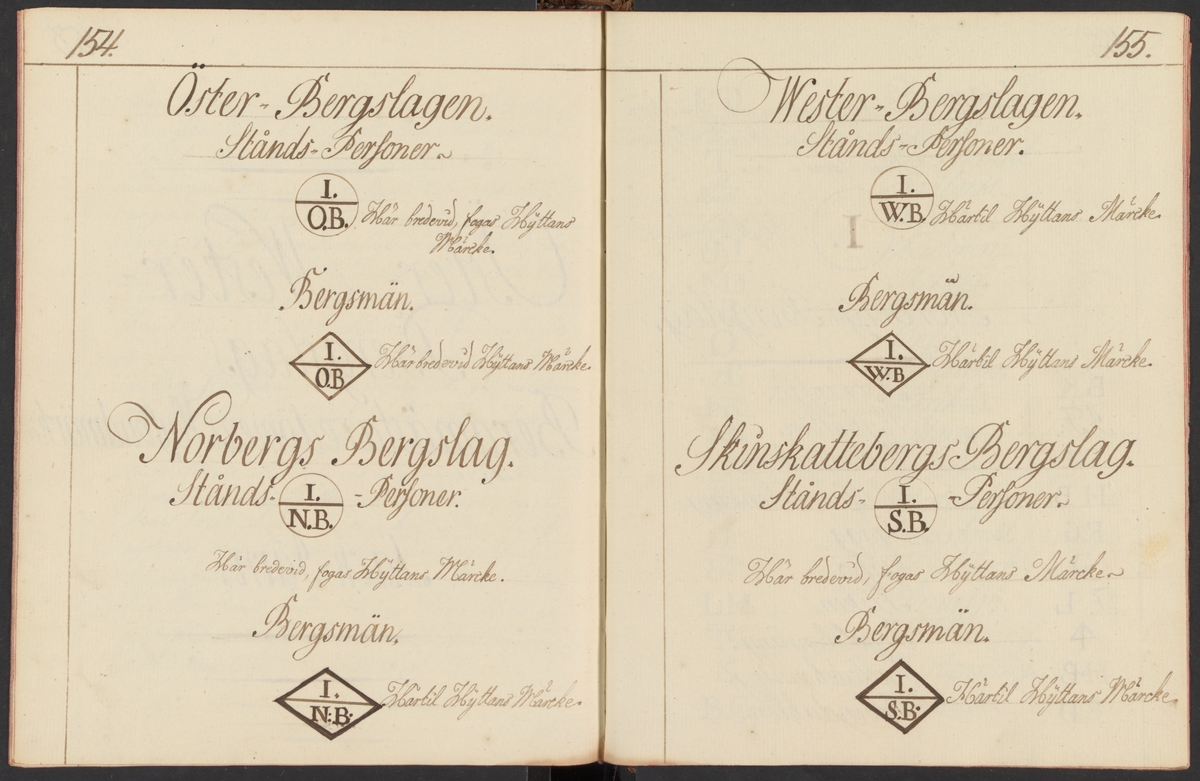 154.
Öster-Bergslagen.
Stånds-Personer.
I.
O.B.
Här bredevid, fogas Hÿttans
Märcke.
Bergsmän.
I.
O.B
Här bredevid Hÿttans Märcke.
Norbergs Bergslag.
Stånds- I. -Personer.
N.B.
Här bredevid, fogas Hÿttans Märcke.
Bergsmän.
I.
N.B.
Härtil Hÿttans Märcke.
155.
Wester-Bergslagen.
Stånds-Personer.
I.
W.B.
Härtil Hÿttans Märcke.
I
Bergsmän.
I.
W.B
Härtil Hÿttans Märcke.
Skinskattebergs Bergslag.
Stånds- I. -Personer.
S.B.
Här bredevid, fogas Hÿttans Märcke.
Bergsmän.
I.
S.B.
Härtil Hÿttans Märcke.